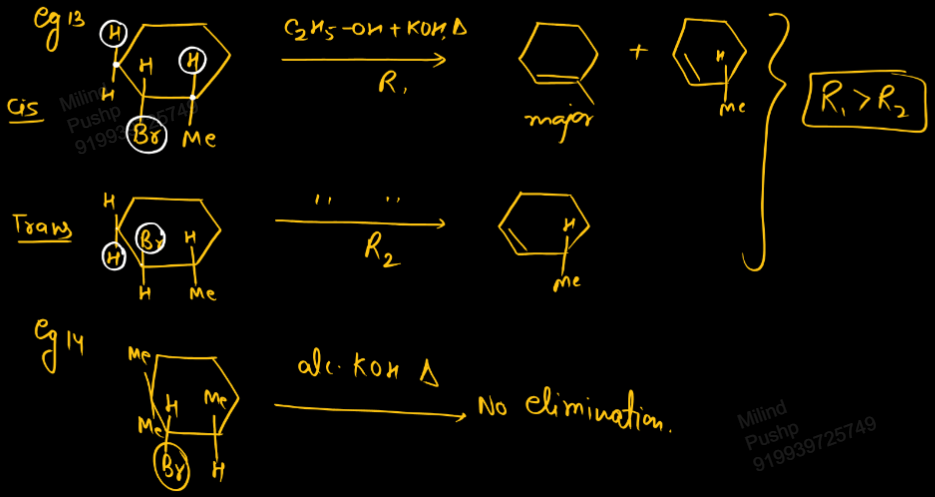 eg 13
Cis
H
H
H
H
Br
Me
C₂H₅-OH + KOH, Δ
R₁
major
+
H
Me
R₁ > R₂
Trans
H
H
Br
H
H
Me
" "
R₂
H
Me
eg 14
Me
Me
H
Br
Me
H
alc. KOH Δ
No elimination.
Milind
Pushp
919939725749
Milind
Pushp
919939725749